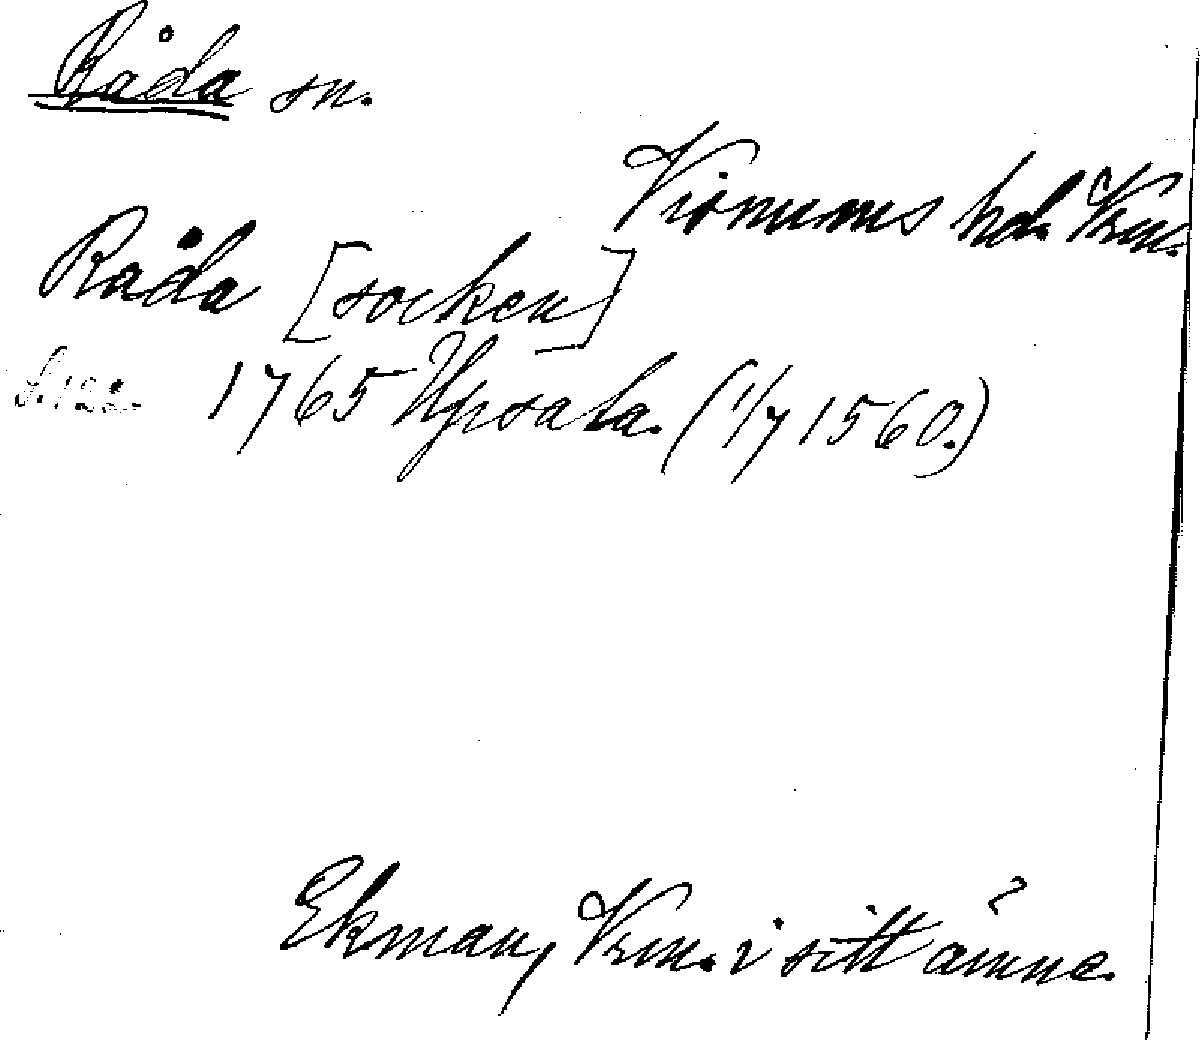 Råda sn.
Visnums hd. Vrm.
Råda [socken]
S. 122. 1765 Upsala. (1/7 1560.)
Ekman, Vrm. i sitt ämne.